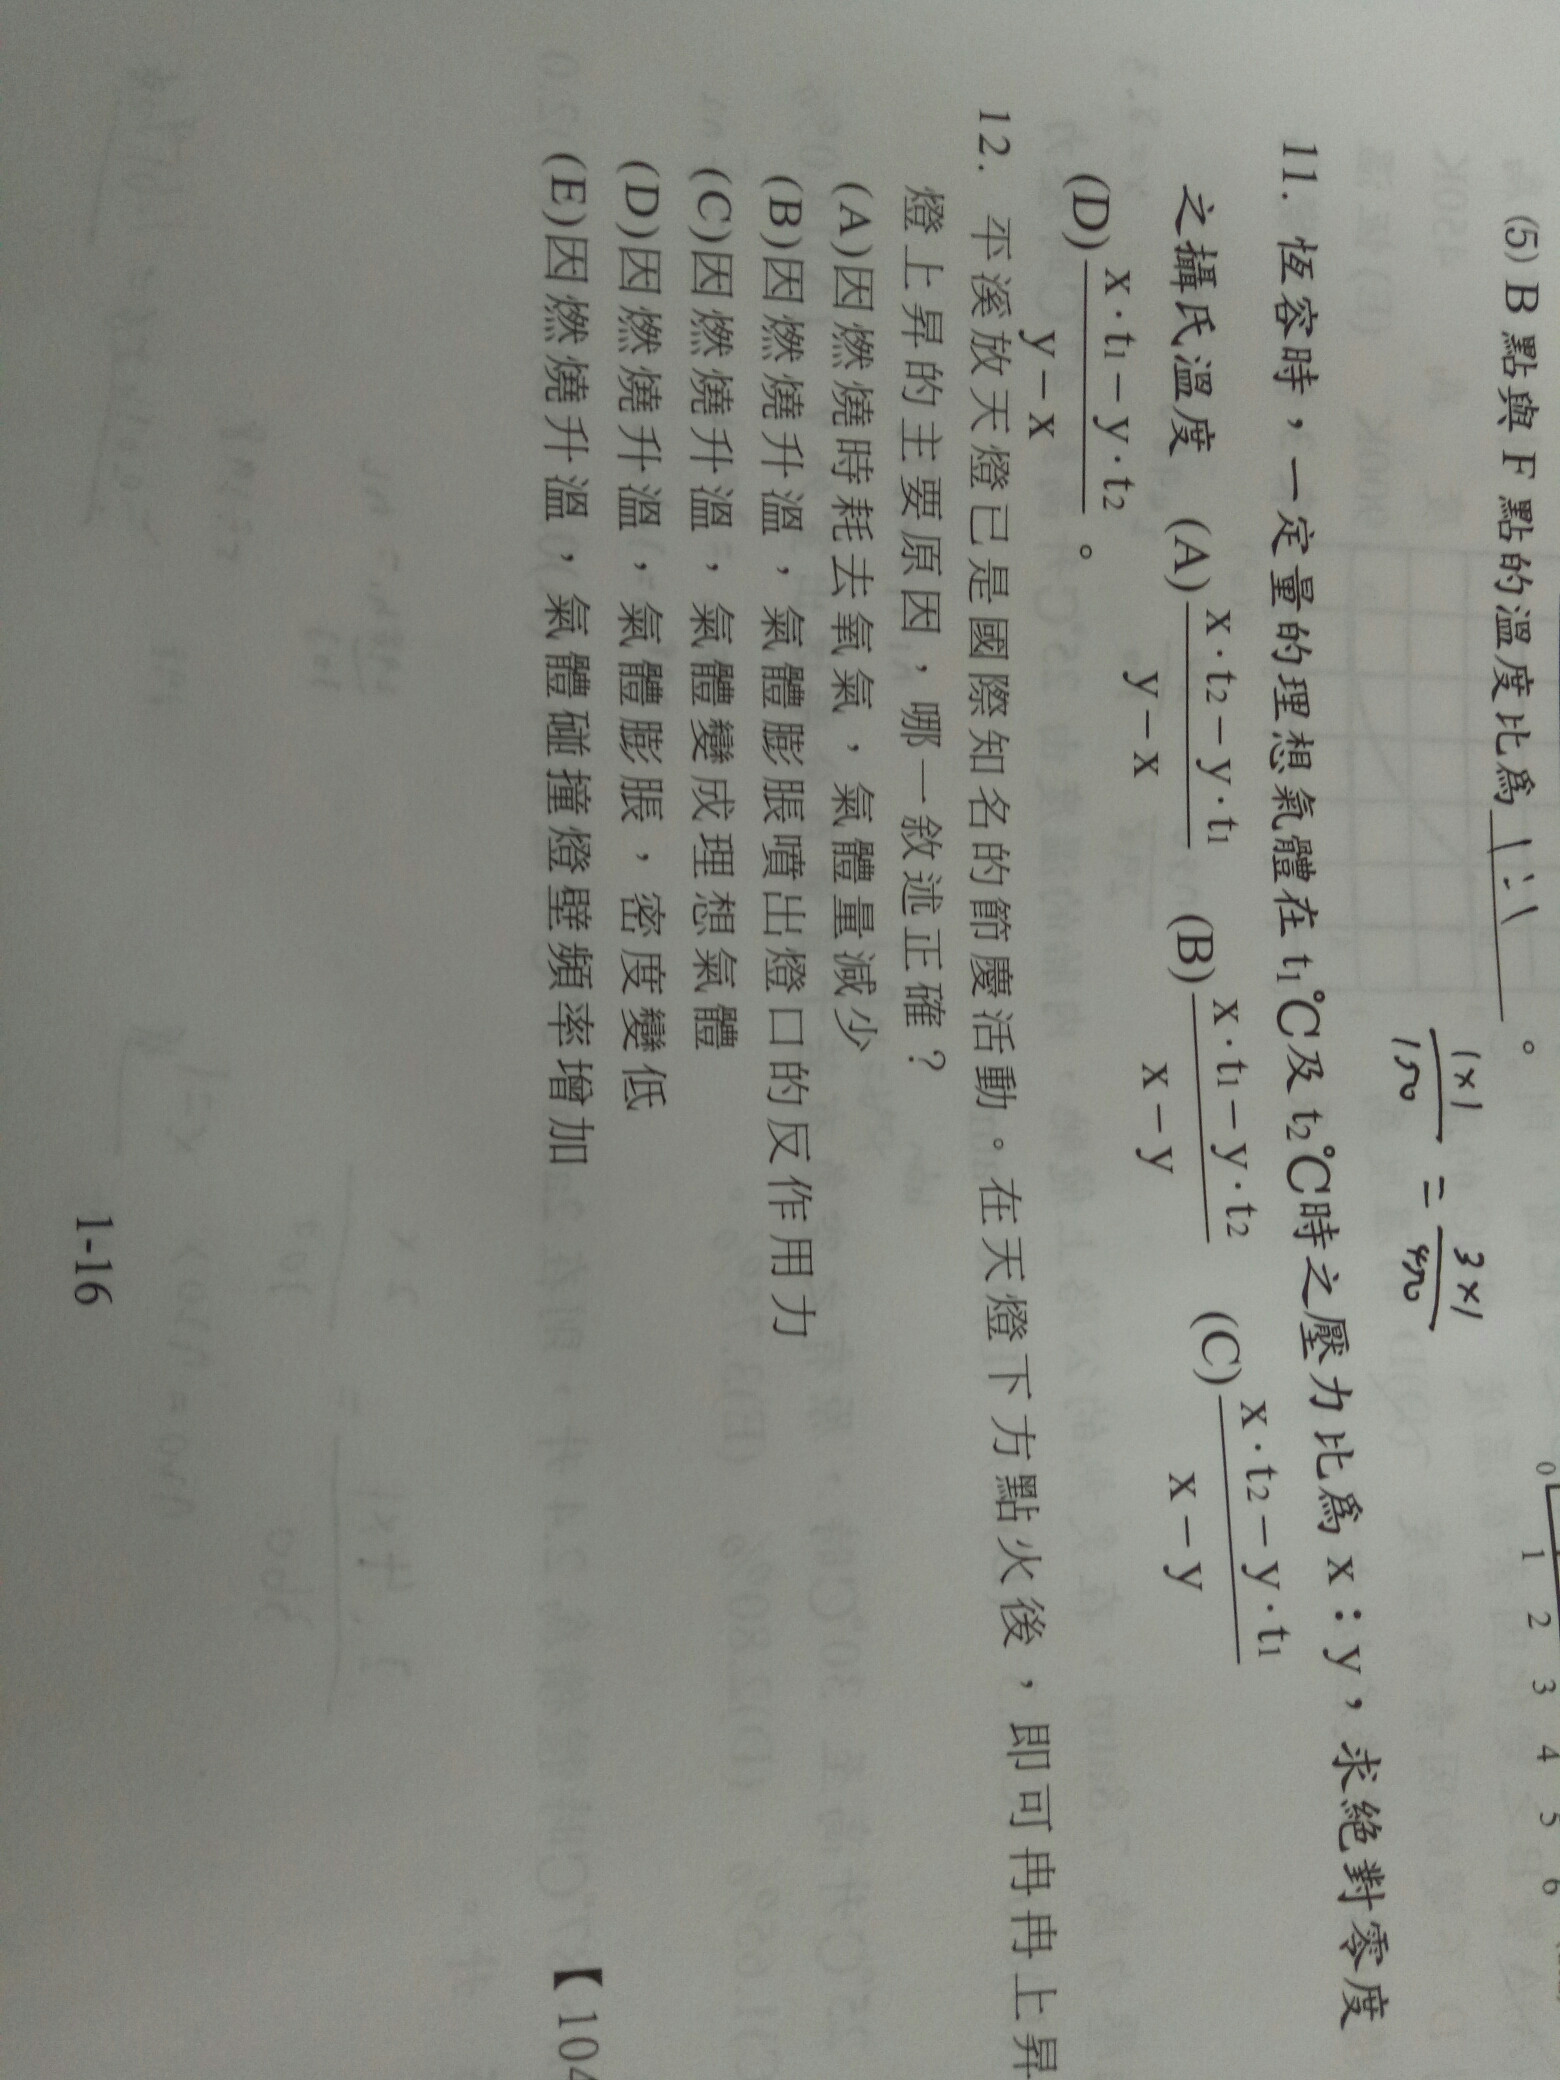 (5) B 點與 F 點的溫度比為 1:1 。
0 1 2 3 4 5 6
1×1 / 150 = 3×1 / 450
11. 恆容時,一定量的理想氣體在 t₁℃及 t₂℃時之壓力比為 x:y,求絕對零度
之攝氏溫度 (A) x·t₂−y·t₁ / y−x (B) x·t₁−y·t₂ / x−y (C) x·t₂−y·t₁ / x−y
(D) x·t₁−y·t₂ / y−x 。
12. 平溪放天燈已是國際知名的節慶活動。在天燈下方點火後,即可冉冉上昇
燈上昇的主要原因,哪一敘述正確?
(A)因燃燒時耗去氧氣,氣體量減少
(B)因燃燒升溫,氣體膨脹噴出燈口的反作用力
(C)因燃燒升溫,氣體變成理想氣體
(D)因燃燒升溫,氣體膨脹,密度變低
(E)因燃燒升溫,氣體碰撞燈壁頻率增加
【104
1-16